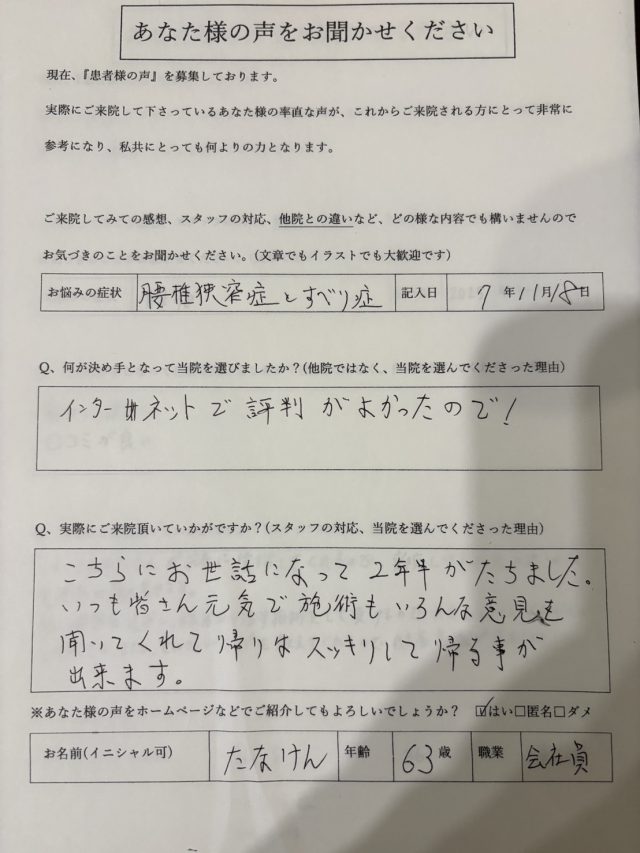 あなた様の声をお聞かせください
現在、『患者様の声』を募集しております。
実際にご来院して下さっているあなた様の率直な声が、これからご来院される方にとって非常に
参考になり、私共にとっても何よりの力となります。
ご来院してみての感想、スタッフの対応、他院との違いなど、どの様な内容でも構いませんので
お気づきのことをお聞かせください。(文章でもイラストでも大歓迎です)
お悩みの症状 腰椎狭窄症とすべり症 記入日 7年11月18日
Q、何が決め手となって当院を選びましたか?(他院ではなく、当院を選んでくださった理由)
インターネットで評判がよかったので!
Q、実際にご来院頂いていかがですか?(スタッフの対応、当院を選んでくださった理由)
こちらにお世話になって2年半がたちました。
いつも皆さん元気で施術もいろんな意見を
聞いてくれて帰りはスッキリして帰る事が
出来ます。
※あなた様の声をホームページなどでご紹介してもよろしいでしょうか? ☑はい□匿名□ダメ
お名前(イニシャル可) たなけん 年齢 63歳 職業 会社員